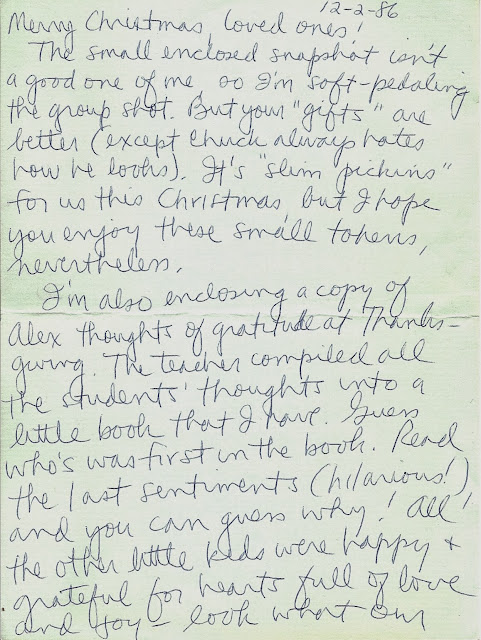 12-2-86
Merry Christmas, loved ones!
The small enclosed snapshot isn't
a good one of me, so I'm soft-pedaling
the group shot. But your "gifts" are
better (except Chuck always hates
how he looks). It's "slim pickins"
for us this Christmas, but I hope
you enjoy these small tokens,
nevertheless.
I'm also enclosing a copy of
Alex thoughts of gratitude at Thanks-
giving. The teacher compiled all
the students' thoughts into a
little book that I have. Guess
who's was first in the book. Read
the last sentiments (hilarious!)
and you can guess why! All!
the other little kids were happy +
grateful for hearts full of love
and joy - look what our